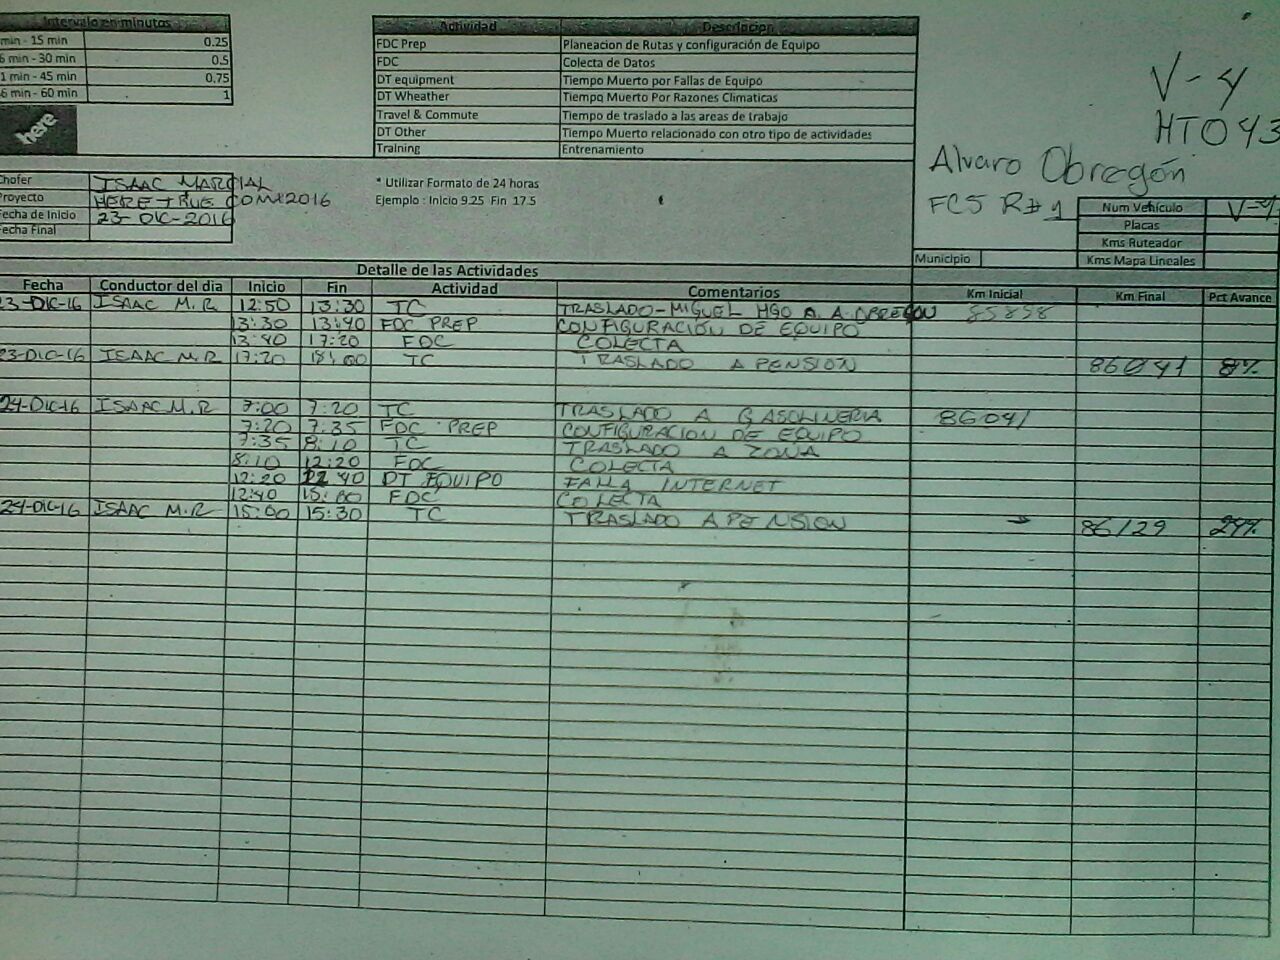 Intervalo en minutos
min - 15 min 0.25
6 min - 30 min 0.5
1 min - 45 min 0.75
6 min - 60 min 1
here
Actividad Descripcion
FDC Prep Planeacion de Rutas y configuración de Equipo
FDC Colecta de Datos
DT equipment Tiempo Muerto por Fallas de Equipo
DT Wheather Tiempo Muerto Por Razones Climaticas
Travel & Commute Tiempo de traslado a las areas de trabajo
DT Other Tiempo Muerto relacionado con otro tipo de actividades
Training Entrenamiento
V-4
HT043
Alvaro Obregón
FC5 R#1
Chofer ISAAC MARCIAL
Proyecto HERE TRUE COMX2016
Fecha de Inicio 23-DIC-2016
Fecha Final
* Utilizar Formato de 24 horas
Ejemplo : Inicio 9.25 Fin 17.5
Num Vehículo V-4
Placas
Kms Ruteador
Kms Mapa Lineales
Municipio
Detalle de las Actividades
Fecha Conductor del dia Inicio Fin Actividad Comentarios Km Inicial Km Final Pct Avance
23-DIC-16 ISAAC M.R 12:50 13:30 TC TRASLADO-MIGUEL HGO A. A. OBREGON 85858
13:30 13:40 FDC PREP CONFIGURACIÓN DE EQUIPO
13:40 17:20 FDC COLECTA
23-DIC-16 ISAAC M.R 17:20 18:00 TC TRASLADO A PENSION 86041 8%
24-DIC-16 ISAAC M.R 7:00 7:20 TC TRASLADO A GASOLINERIA 86041
7:20 7:35 FDC PREP CONFIGURACION DE EQUIPO
7:35 8:10 TC TRASLADO A ZONA
8:10 12:20 FDC COLECTA
12:20 12:40 DT EQUIPO FALLA INTERNET
12:40 15:00 FDC COLECTA
24-DIC-16 ISAAC M.R 15:00 15:30 TC TRASLADO A PENSION 86129 24%